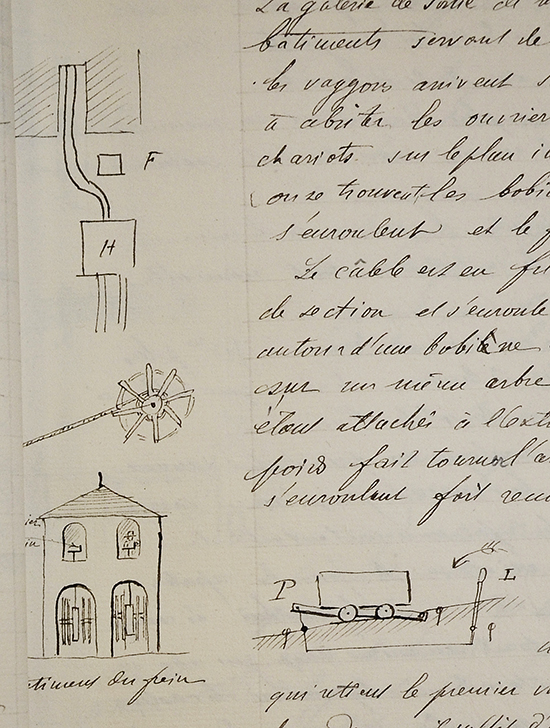 La galerie de
bâtiments servant de
les vaggons arrivent
à abriter les ouvrier
chariots sur le plan in
on se trouvent les bobi
s'enroulent et le f
Le câble est en fi
de section et s'enroule
autour d'une bobine
sur un même arbre
étant attachés à l'extr
poids fait tourner l'a
s'enroulent fait recu
F
H
P
L
timent du frein
qui retient le premier